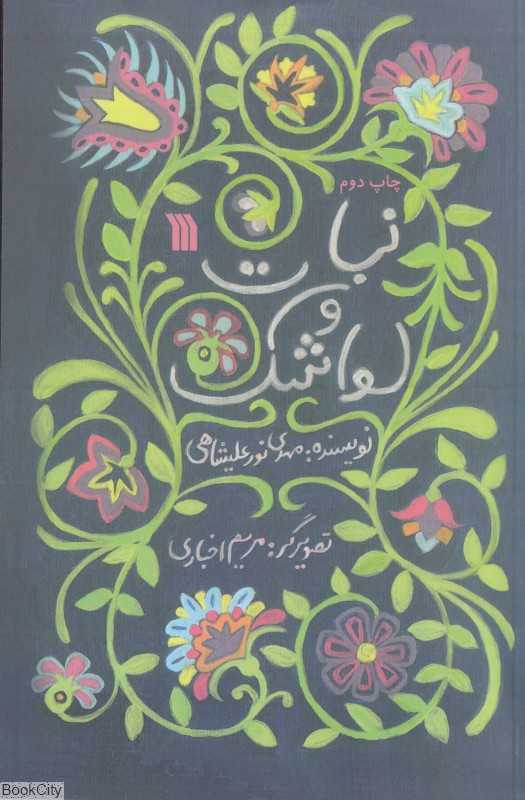 چاپ دوم
نبات
و
لواشک
نویسنده: مهدی نورعلیشاهی
تصویرگر: مریم اخباری
BookCity